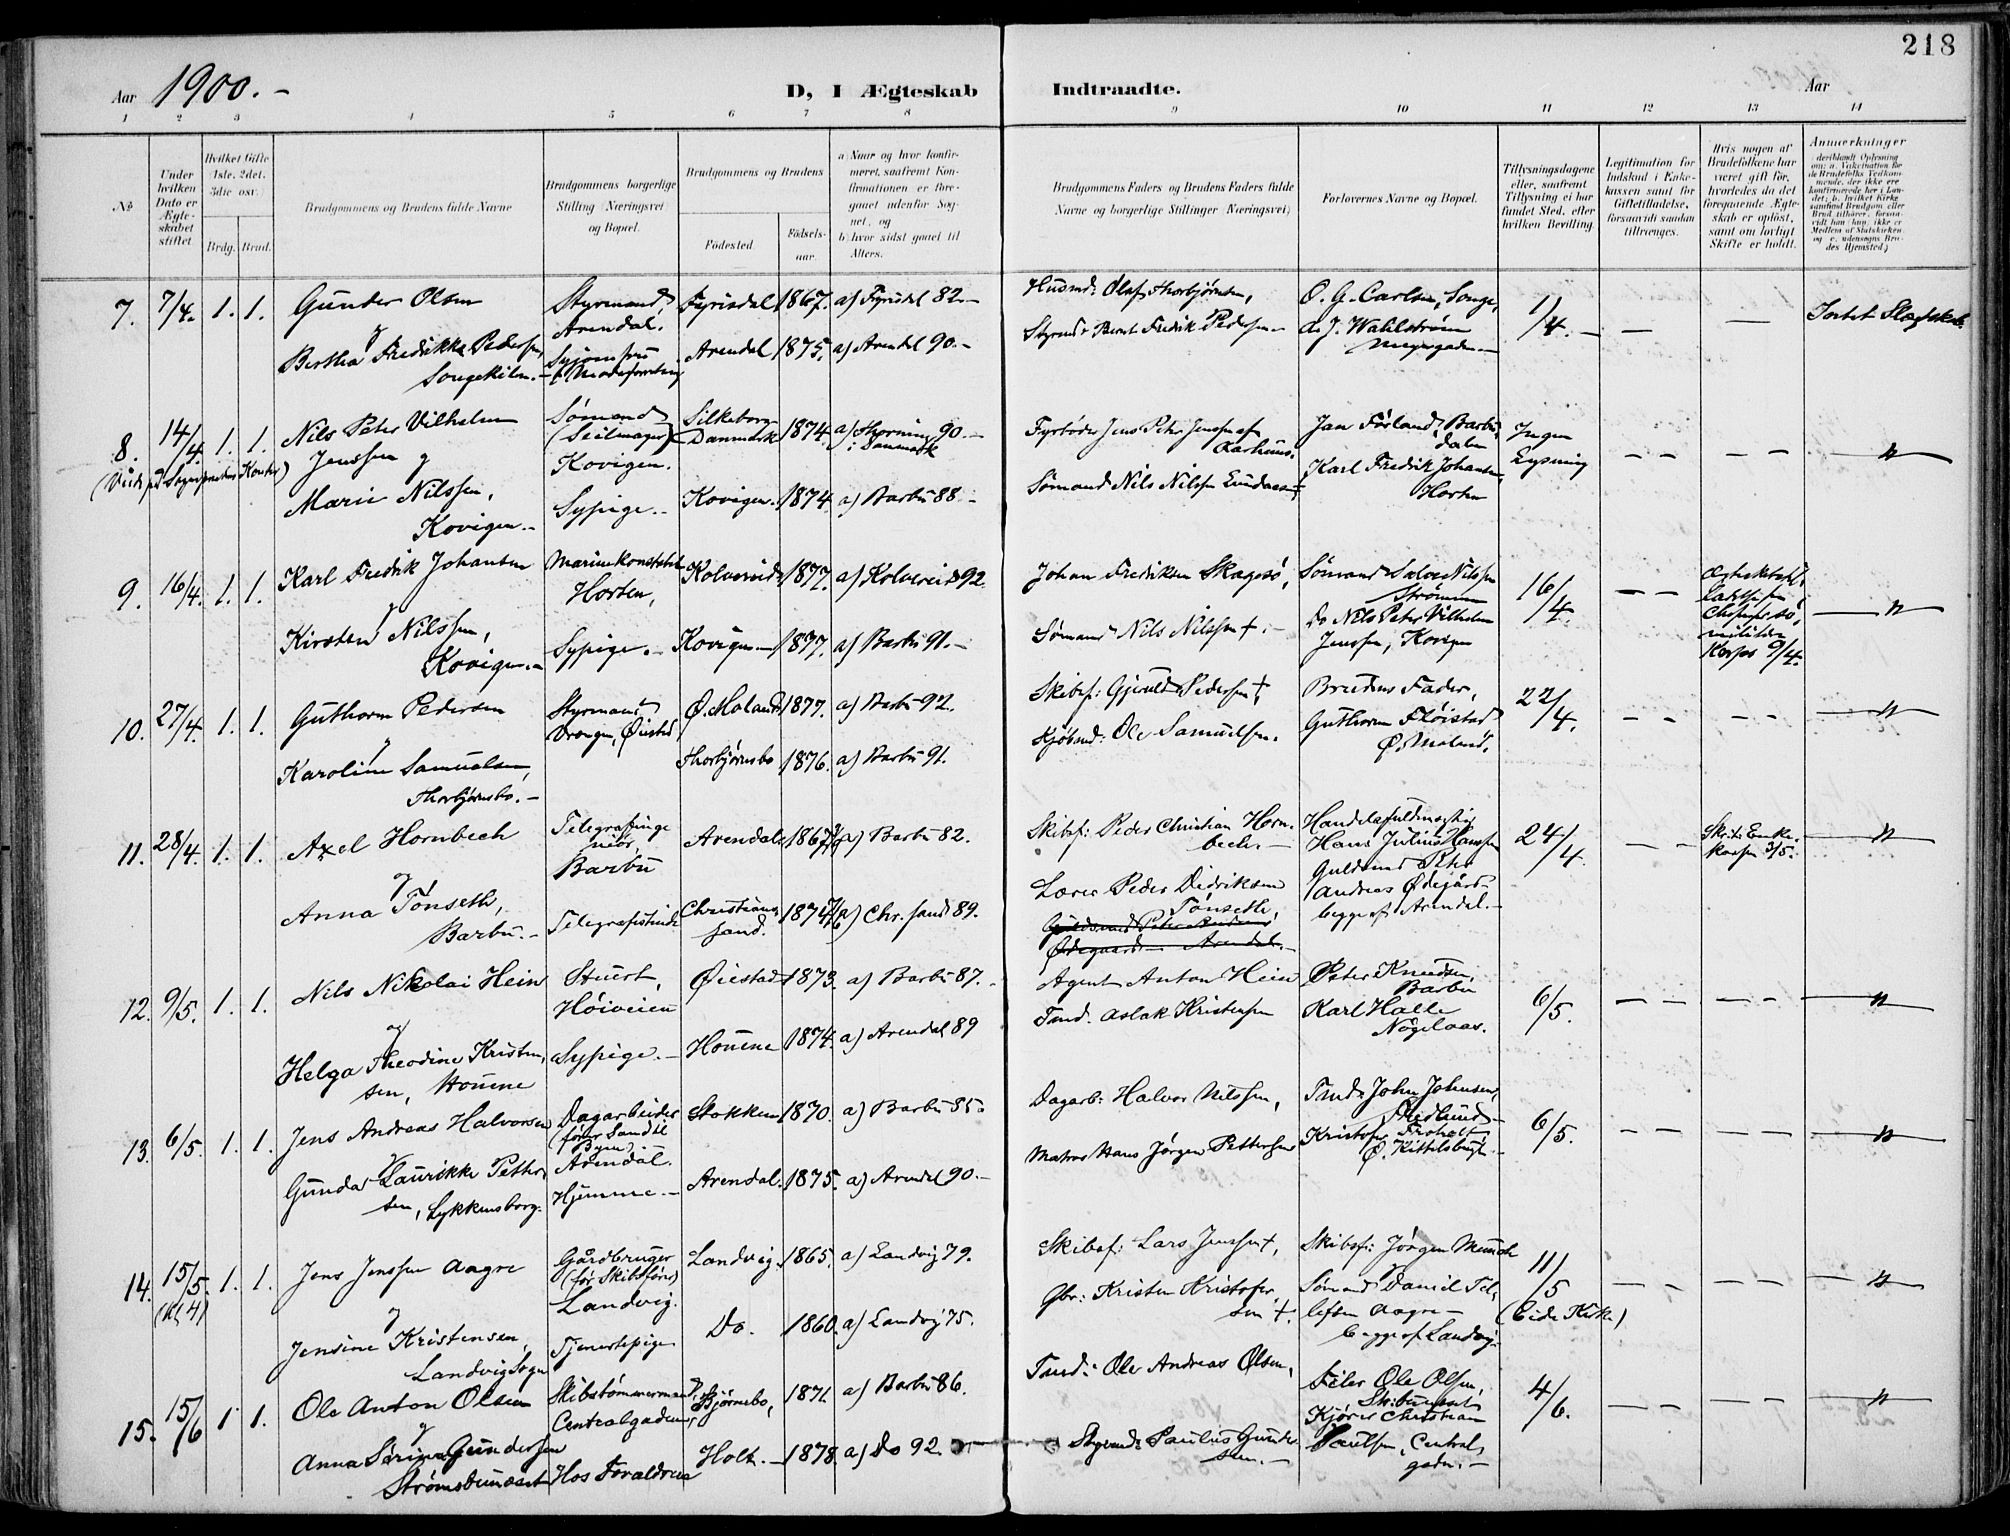 218
Aar 1900. –
D, I Ægteskab Indtraadte.
Aar
1 2 3 4 5 6 7 8 9 10 11 12 13 14
No
Under hvilken Dato er Ægteskabet stiftet.
Hvilket Gifte (1ste, 2det, 3die osv.)
Brdg. Brud.
Brudgommens og Brudens fulde Navne
Brudgommens borgerlige Stilling (Næringsvei) og Bopæl.
Brudgommens og Brudens
Fødested
Fødselsaar.
a) Naar og hvor konfirmeret, saafremt Konfirmationen er foregaaet udenfor Sognet, og
b) hvor sidst gaaet til Alters.
Brudgommens Faders og Brudens Faders fulde Navne og borgerlige Stillinger (Næringsvei)
Forlovernes Navne og Bopæl.
Tillysningsdagene eller, saafremt Tillysning ei har fundet Sted, efter hvilken Bevilling.
Legitimation for Indskud i Enkekassen samt for Giftetilladelse, forsaavidt saadan tiltrænges.
Hvis nogen af Brudefolkene har været gift før, hvorledes da det foregaaende Ægteskab er opløst, samt om lovligt Skifte er holdt.
Anmerkninger
7. 7/4. 1. 1. Gunder Olsen Styrmand, Arendal. Fyrisdal 1867. a) Fyrisdal 82. – Husmd: Olaf Thorbjørnsen, O. G. Carlsen, Songe, 1/4. – — — Intet Slægtskab.
og
Bertha Fredrikke Pedersen, Songekiln. – Syjomfru Arendal 1875. a) Arendal 90. – Styrmd: Bernt Fredrik Pedersen – J. Wahlstrøm
8. 14/4. 1. 1. Nils Peter Vilhelm Jenssen og Sømand (Seilmager) Kovigen. Silkeborg Danmark 1874. a) Thorning i Danmark 90. – Fyrbøder Jens Peter Jenssen af Aarhuus. Jan Førland, Barbudalen Ingen Lysning – – – – "
Marie Nilssen, Kovigen. – Sypige. – Kovigen. 1874. a) Barbu 88. – Sømand Nils Nilssen Karl Fredrik Johansen, Horten
9. 16/4. 1. 1. Karl Fredrik Johansen Horten, Kolvereid 1877. a) Kolvereid 92. Johan Fredriksen Skagesø, Sømand Salve Nilssen Strømmen 16/4. – – "
og
Kirsten Nilssen, Kovigen. – Sypige. – Kovigen – 1877. a) Barbu 91. – Sømand Nils Nilssen †. – Do Nils Peter Vilhelm Jenssen, Kovigen
10. 27/4. 1. 1. Guthorm Pedersen Styrmand Vrengen, Øiestad Ø. Moland 1877. a) Barbu 92. Skibsf: Gjeruld Pedersen †, Brudens Fader, 22/4. – – – – "
og
Karoline Samuelsen, Thorbjørnsbo. – Thorbjørnsbo 1876. a) Barbu 91. Kjøbmd: Ole Samuelsen. Guthorm Fløistad Ø. Moland.
11. 28/4. 1. 1. Axel Hornbech Telegrafingeniør, Barbu Arendal. 1867 a) Barbu 82. Skibsf: Peder Christian Hornbech. – Handelsfuldmægtig Hans Julius Hanssen 24/4. – – "
og
Anna Tønseth, Barbu. – Telegrafistinde Christianssand. 1874 a) Chr.sand 89. Lærer Peder Didriksen Tønseth, Guldsmed Peter Andreas Ødegård begge af Arendal. –
Guldsmed Peter Andreas Ødegaard – Arendal. –
12. 9/5. 1. 1. Nils Nikolai Hein Stuert, Høiveien Øiestad 1873. a) Barbu 87. – Agent Anton Hein Peter Knudsen, Barbu 6/5. – – – – "
og
Helga Theodine Kristensen, Houene Sypige. – Houene 1874. a) Arendal 89 Tmd. Aslak Kristensen Karl Halle Nøgelaas.
13. 6/5. 1. 1. Jens Andreas Halvorsen Dagarbeider Arendal. Stokken 1870. a) Barbu 85. Dagarb: Halvor Nilssen, Tmd: John Johnsen, 6/5. – – – – "
og
Gunda Laurikke Pettersen, Lykkensborg. Hjemme. – Arendal. 1875. a) Arendal 90. – Matros Hans Jørgen Pettersen Ø. Kittelsbugt. –
14. 15/5. (Kl 4) 1. 1. Jens Jenssen Aagre Gårdbruger (før Skibsfører) Landvig. Landvig. 1865. a) Landvig 79. Skibsf: Lars Jenssen †, Skibsf: Jørgen Munch 11/5 (Eide Kirke) – – – – "
og
Jensine Kristensen, Landvig Sogn Tjenestepige Do. 1860. a) Landvig 75. Gbr: Kristen Kristofersen †. Sømand Daniel Tellefsen Aagre – begge af Landvig
15. 15/6 1 1. Ole Anton Olsen Skibstømmermand, Centralgaden Bjørnebo, 1871. a) Barbu 86. Tmd: Ole Andreas Olsen, Feier Ole Olsen, 4/6. – – – – "
og
Anna Sørine Gundersen Strømsbuneset Hos Foraldrene Holt. – 1878. a) Do 92. Styrmd: Paulus Gundersen. – Kjører Christian Paulsen, Centralgaden. –